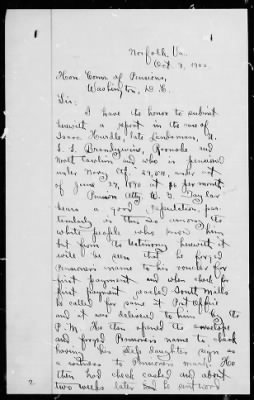 1
Norfolk, Va.
Oct. 3, 1902.
Hon. Comr. of Pensions,
Washington, D. C.
Sir:
I have the honor to submit
herewith a report in the case of
Isaac Hurdle, late Landsman, U.
S. S. Brandywine, Roanoke and
North Carolina and who is pensioned
under Navy Ctf. under act
of June 27, 1890 at $6 per month.
Pension Atty W. B.
bears a good reputation, par-
ticularly is this so among the
white people who know him
but from the testimony herewith it
will be seen that he forged
Pensioners name to his voucher for
first payment and when check for
first payment reached South Mills
he called for same at Post Office
and it was delivered to him by the
P. M. He then opened the envelope
and forged Pensioners name to check
having his step daughter sign as
a witness to Pensioners mark. He
then had check cashed and about
two weeks later he sent word
2